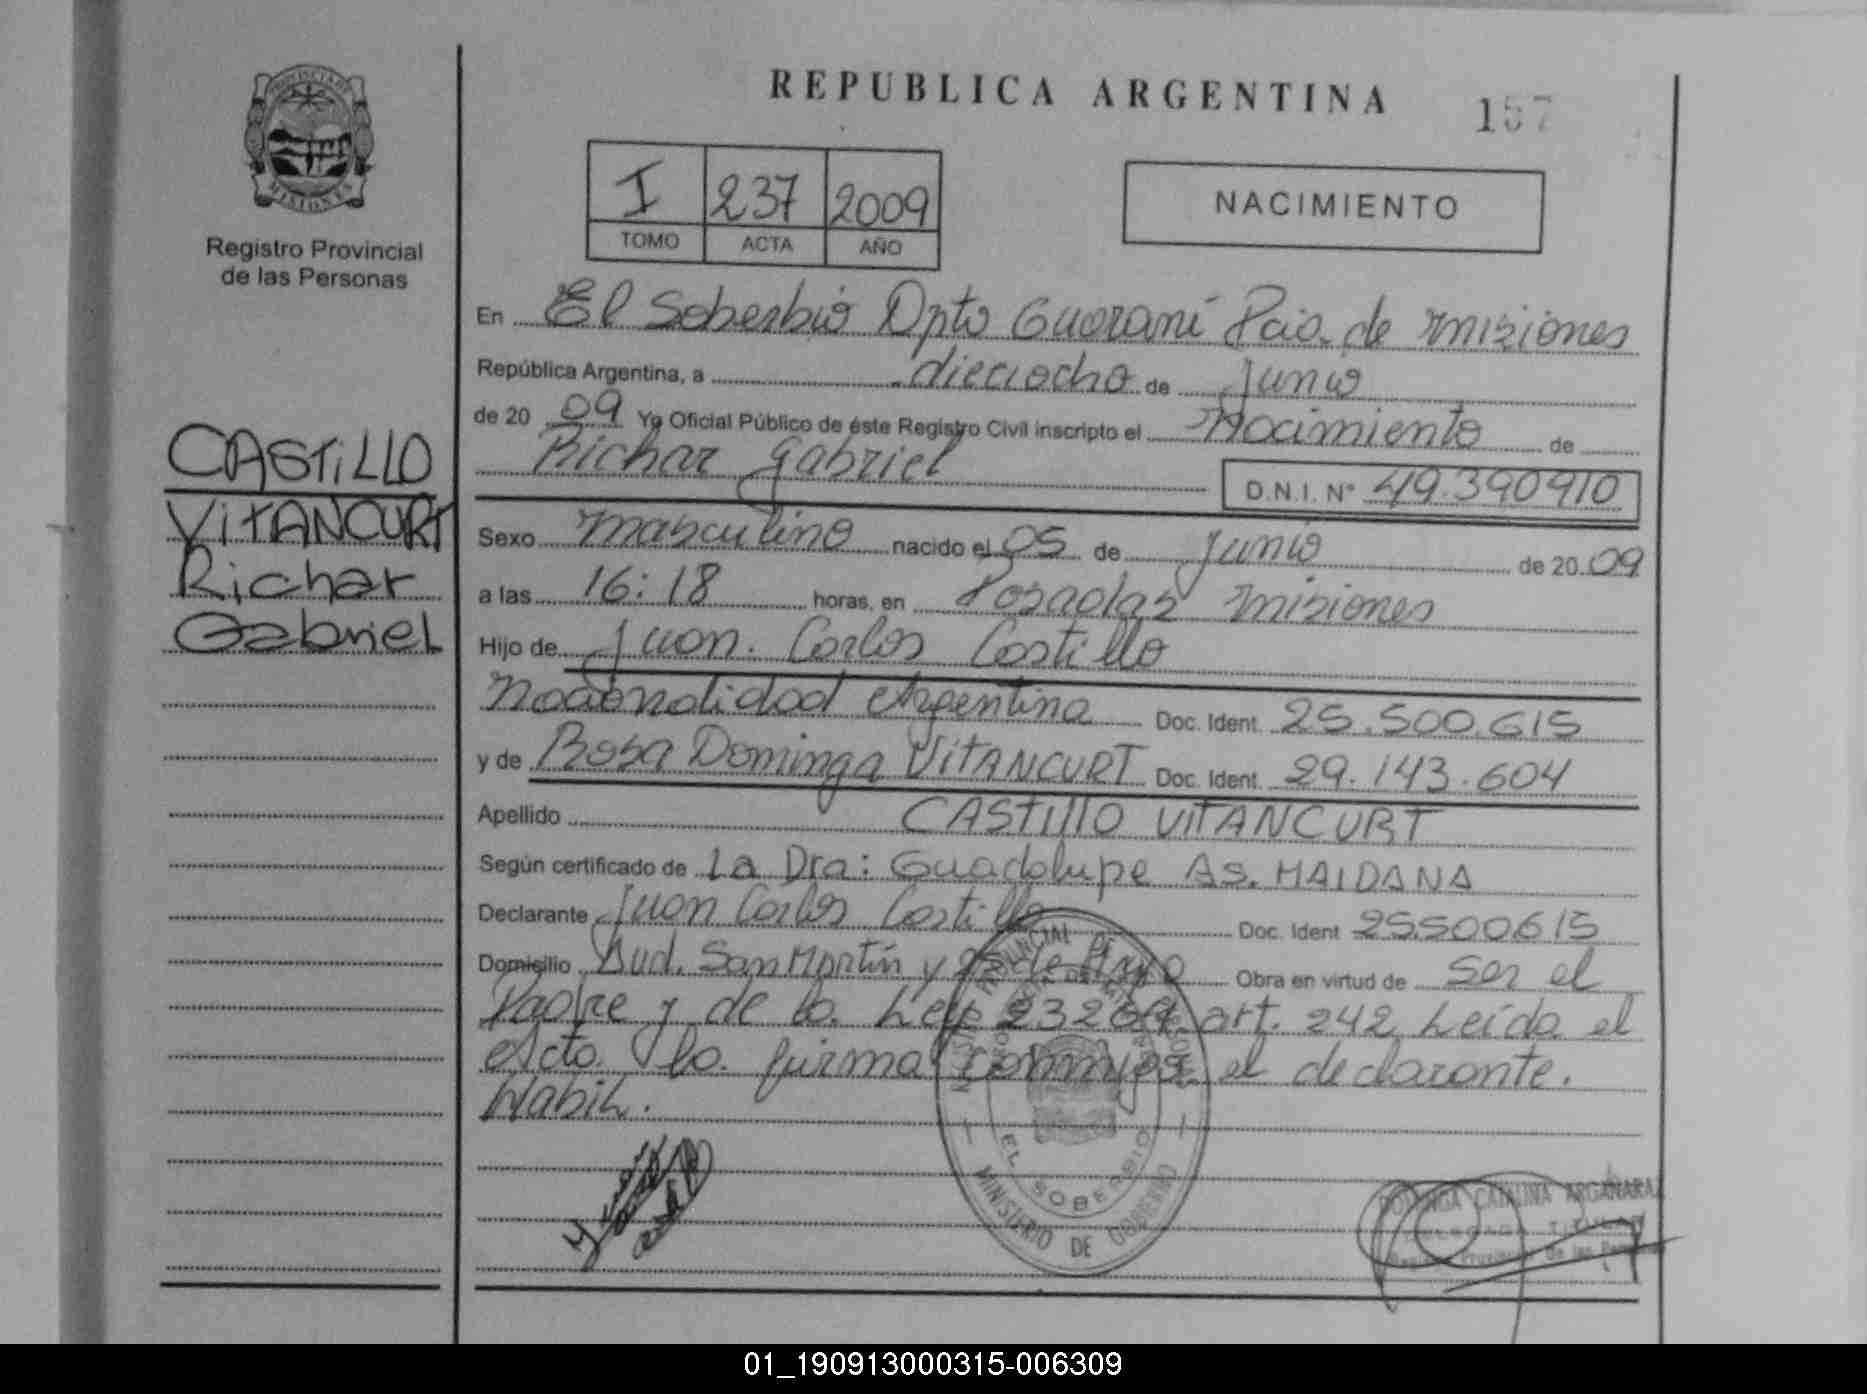 REPUBLICA ARGENTINA
157
PROVINCIA DE MISIONES
Registro Provincial
de las Personas
I 237 2009
TOMO ACTA AÑO
NACIMIENTO
CASTILLO
VITANCURT
Richar
Gabriel
En El Soberbio Dpto Guaraní Pcia. de misiones
República Argentina, a dieciocho de Junio
de 20 09 Yo Oficial Público de éste Registro Civil inscripto el Nacimiento de
Richar Gabriel D.N.I. N° 49.390910
Sexo masculino nacido el 05 de Junio de 20 09
a las 16:18 horas, en Posadas misiones
Hijo de Juan. Carlos Castillo
Nacionalidad Argentina Doc. Ident. 25.500.615
y de Rosa Dominga VITANCURT Doc. Ident. 29.143.604
Apellido CASTILLO VITANCURT
Según certificado de La Dra: Guadalupe As. MAIDANA
Declarante Juan Carlos Castillo Doc. Ident 25500615
Domicilio San Martín y de Mayo Obra en virtud de ser el
Padre y de la Ley 23264 art. 242 Leída el
Acta la firma conmigo el declarante.
REGISTRO PROVINCIAL DE LAS PERSONAS
EL SOBERBIO
MINISTERIO DE GOBIERNO
DOMINGA CATALINA ARGAÑARAZ
DELEGADA TITULAR
Registro Provincial de las Personas
01_190913000315-006309